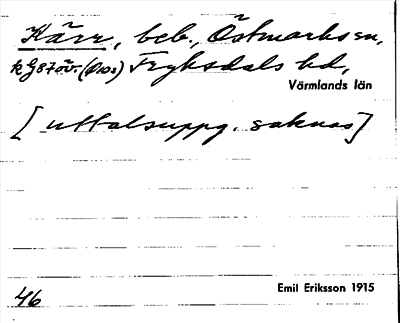 Kärr, beb., Östmarks sn,
k G 87 öv. (Ø 103) Fryksdals hd,
Värmlands län
[uttalsuppg. saknas]
Emil Eriksson 1915
46